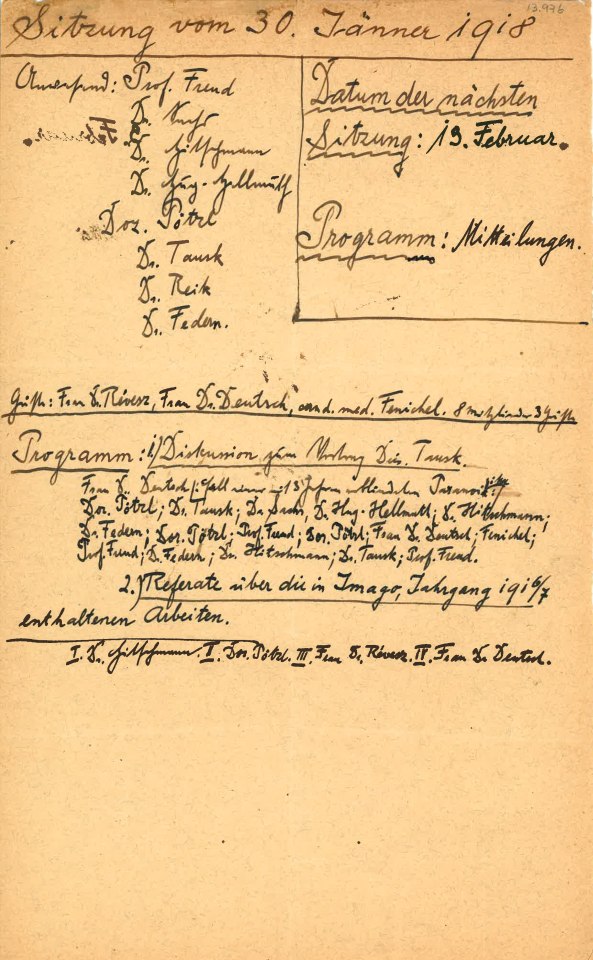 13.976
Sitzung vom 30. Jänner 1918
Anwesend: Prof. Freud
Dr. Sachs
Dr. Hitschmann
Dr. Hug-Hellmuth
Doz. Pötzl
Dr. Tausk
Dr. Reik
Dr. Federn.
Datum der nächsten
Sitzung: 13. Februar.
Programm: Mitteilungen.
Gäste: Frau Dr. Révész, Frau Dr. Deutsch, cand. med. Fenichel. 8 Mitglieder 3 Gäste
Programm: 1.) Diskussion zum Vortrag Dris. Tausk.
Frau Dr. Deutsch (: Fall einer mit 13 Jahren erblindeten
Doz. Pötzl; Dr. Tausk; Dr. Sachs, Dr. Hug-Hellmuth; Dr. Hitschmann;
Dr. Federn; Doz. Pötzl; Prof. Freud; Doz. Pötzl; Frau Dr. Deutsch; Fenichel;
Prof. Freud; Dr. Federn; Dr. Hitschmann; Dr. Tausk; Prof. Freud.
2.) Referate über die in Imago, Jahrgang 1916/7
enthaltenen Arbeiten.
I. Dr. Hitschmann. II. Doz. Pötzl. III. Frau Dr. Révész. IV. Frau Dr. Deutsch.